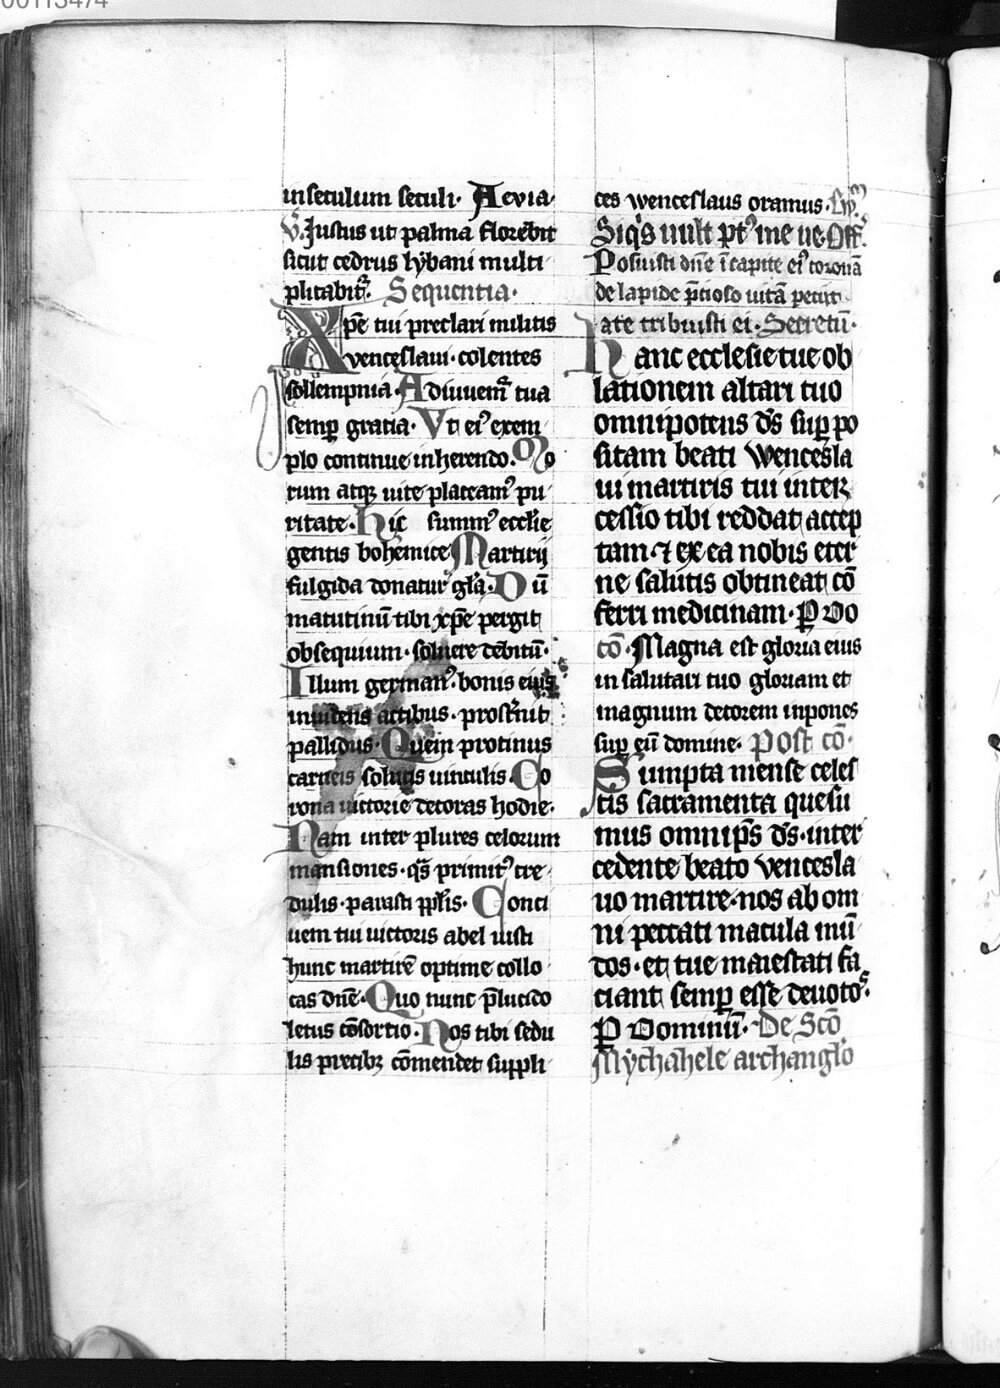 00113474
in seculum seculi· Aevia·
V̕. Justus ut palma florebit
sicut cedrus lybani multi
plicabit᷑. Sequentia·
Xp̅e tui preclari militis
venceslaui· colentes
sollempnia· Adiuuem᷑ tua
semꝑ gratia· Vt eiꝰ exem
plo continue inherendo. Mo
rum atqꝫ uite placeamꝰ pu
ritate· Hic summꝰ eccl̅ie
gentis bohemice Martirii
fulgida donatur gl̅a· Du̅
matutinu̅ tibi xp̅e pergit
obsequium· soluere debitu̅·
Illum germanꝰ· bonis eius
inuidens actibus· prost̾nit
pallidus· Quem protinus
carneis solutis uinculis· Co
rona uictorie decoras hodie·
Nam inter plures celorum
mansiones· qs̅ primitꝰ cre
dulis· parasti pp̅lis· Conci
uem tui uictoris abel uisti
hunc martire̅ optime collo
cas dn̅e· Quo nunc p̅lucido
letus co̅sortio· Nos tibi sedu
lis precibꝫ co̅mendet suppli
ces wenceslaus oramus·
Siq̕s uult pt̕ me ue· Off̅.
Posuisti dn̅e i̅ capite eiꝰ corona̅
de lapide p̅tioso uita̅ peciit
a te tribuisti ei· Secretu̅·
Hanc ecclesie tue ob
lationem altari tuo
omnipotens ds̅ suꝑ po
sitam beati Wencesla
ui martiris tui inter
cessio tibi reddat accep
tam ⁊ ex ea nobis eter
ne salutis obtineat co̅
ferri medicinam· ꝑ Do
co̅· Magna est gloria eius
in salutari tuo gloriam et
magnum decorem inpones
suꝑ eu̅ domine· Post co̅·
Sumpta mense celes
tis sacramenta quesu
mus omnip̅s ds̅· inter
cedente beato Vencesla
uo martire· nos ab om
ni peccati macula mu̅
dos· et tue maiestati fa
ciant semꝑ esse deuotoˢ·
ꝑ Dominu̅· De Sc̅o
Mychahele archanglo̅